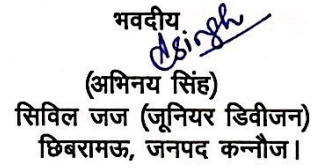 भवदीय
Asingh
(अभिनय सिंह)
सिविल जज (जूनियर डिवीजन)
छिबरामऊ, जनपद कन्नौज।